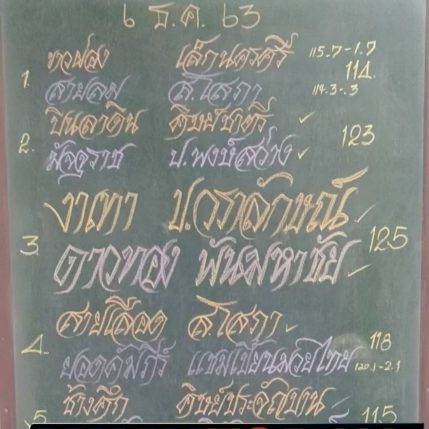 ๖ ธ.ค. ๖๓
1. ทอฝอง เล็กนครศรี 115.7-1.7
สายลม ส.โสภา 114.-3.-.3 114
2. ปิ่นลาดิน ศิษย์ชาตรี ✓ 123
มัจจุราช ป.พงษ์สว่าง ✓
3. งาเทา ป.วราลักษณ์ ✓ 125
ดาวทอง พันมหาชัย ✓
4. สายเลือด ส.โสภา ✓
ยอดคัมภีร์ แชมเปี้ยนมวยไทย 118 120.1-2.1
5. ช้างศึก ศิษย์ประจัญบาน ✓ 115